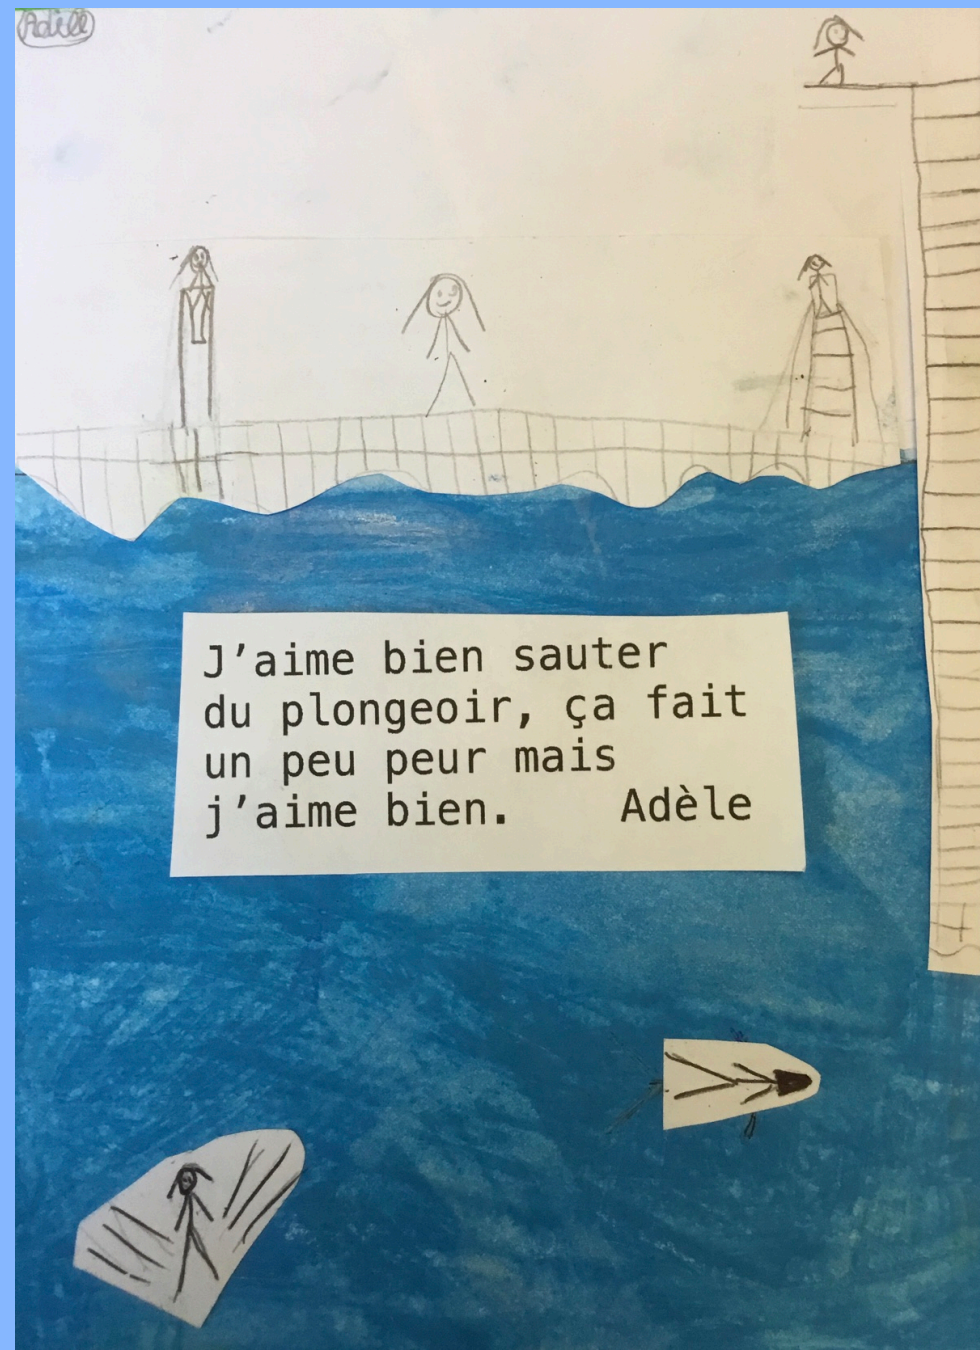 Adèle
J'aime bien sauter
du plongeoir, ça fait
un peu peur mais
j'aime bien. Adèle